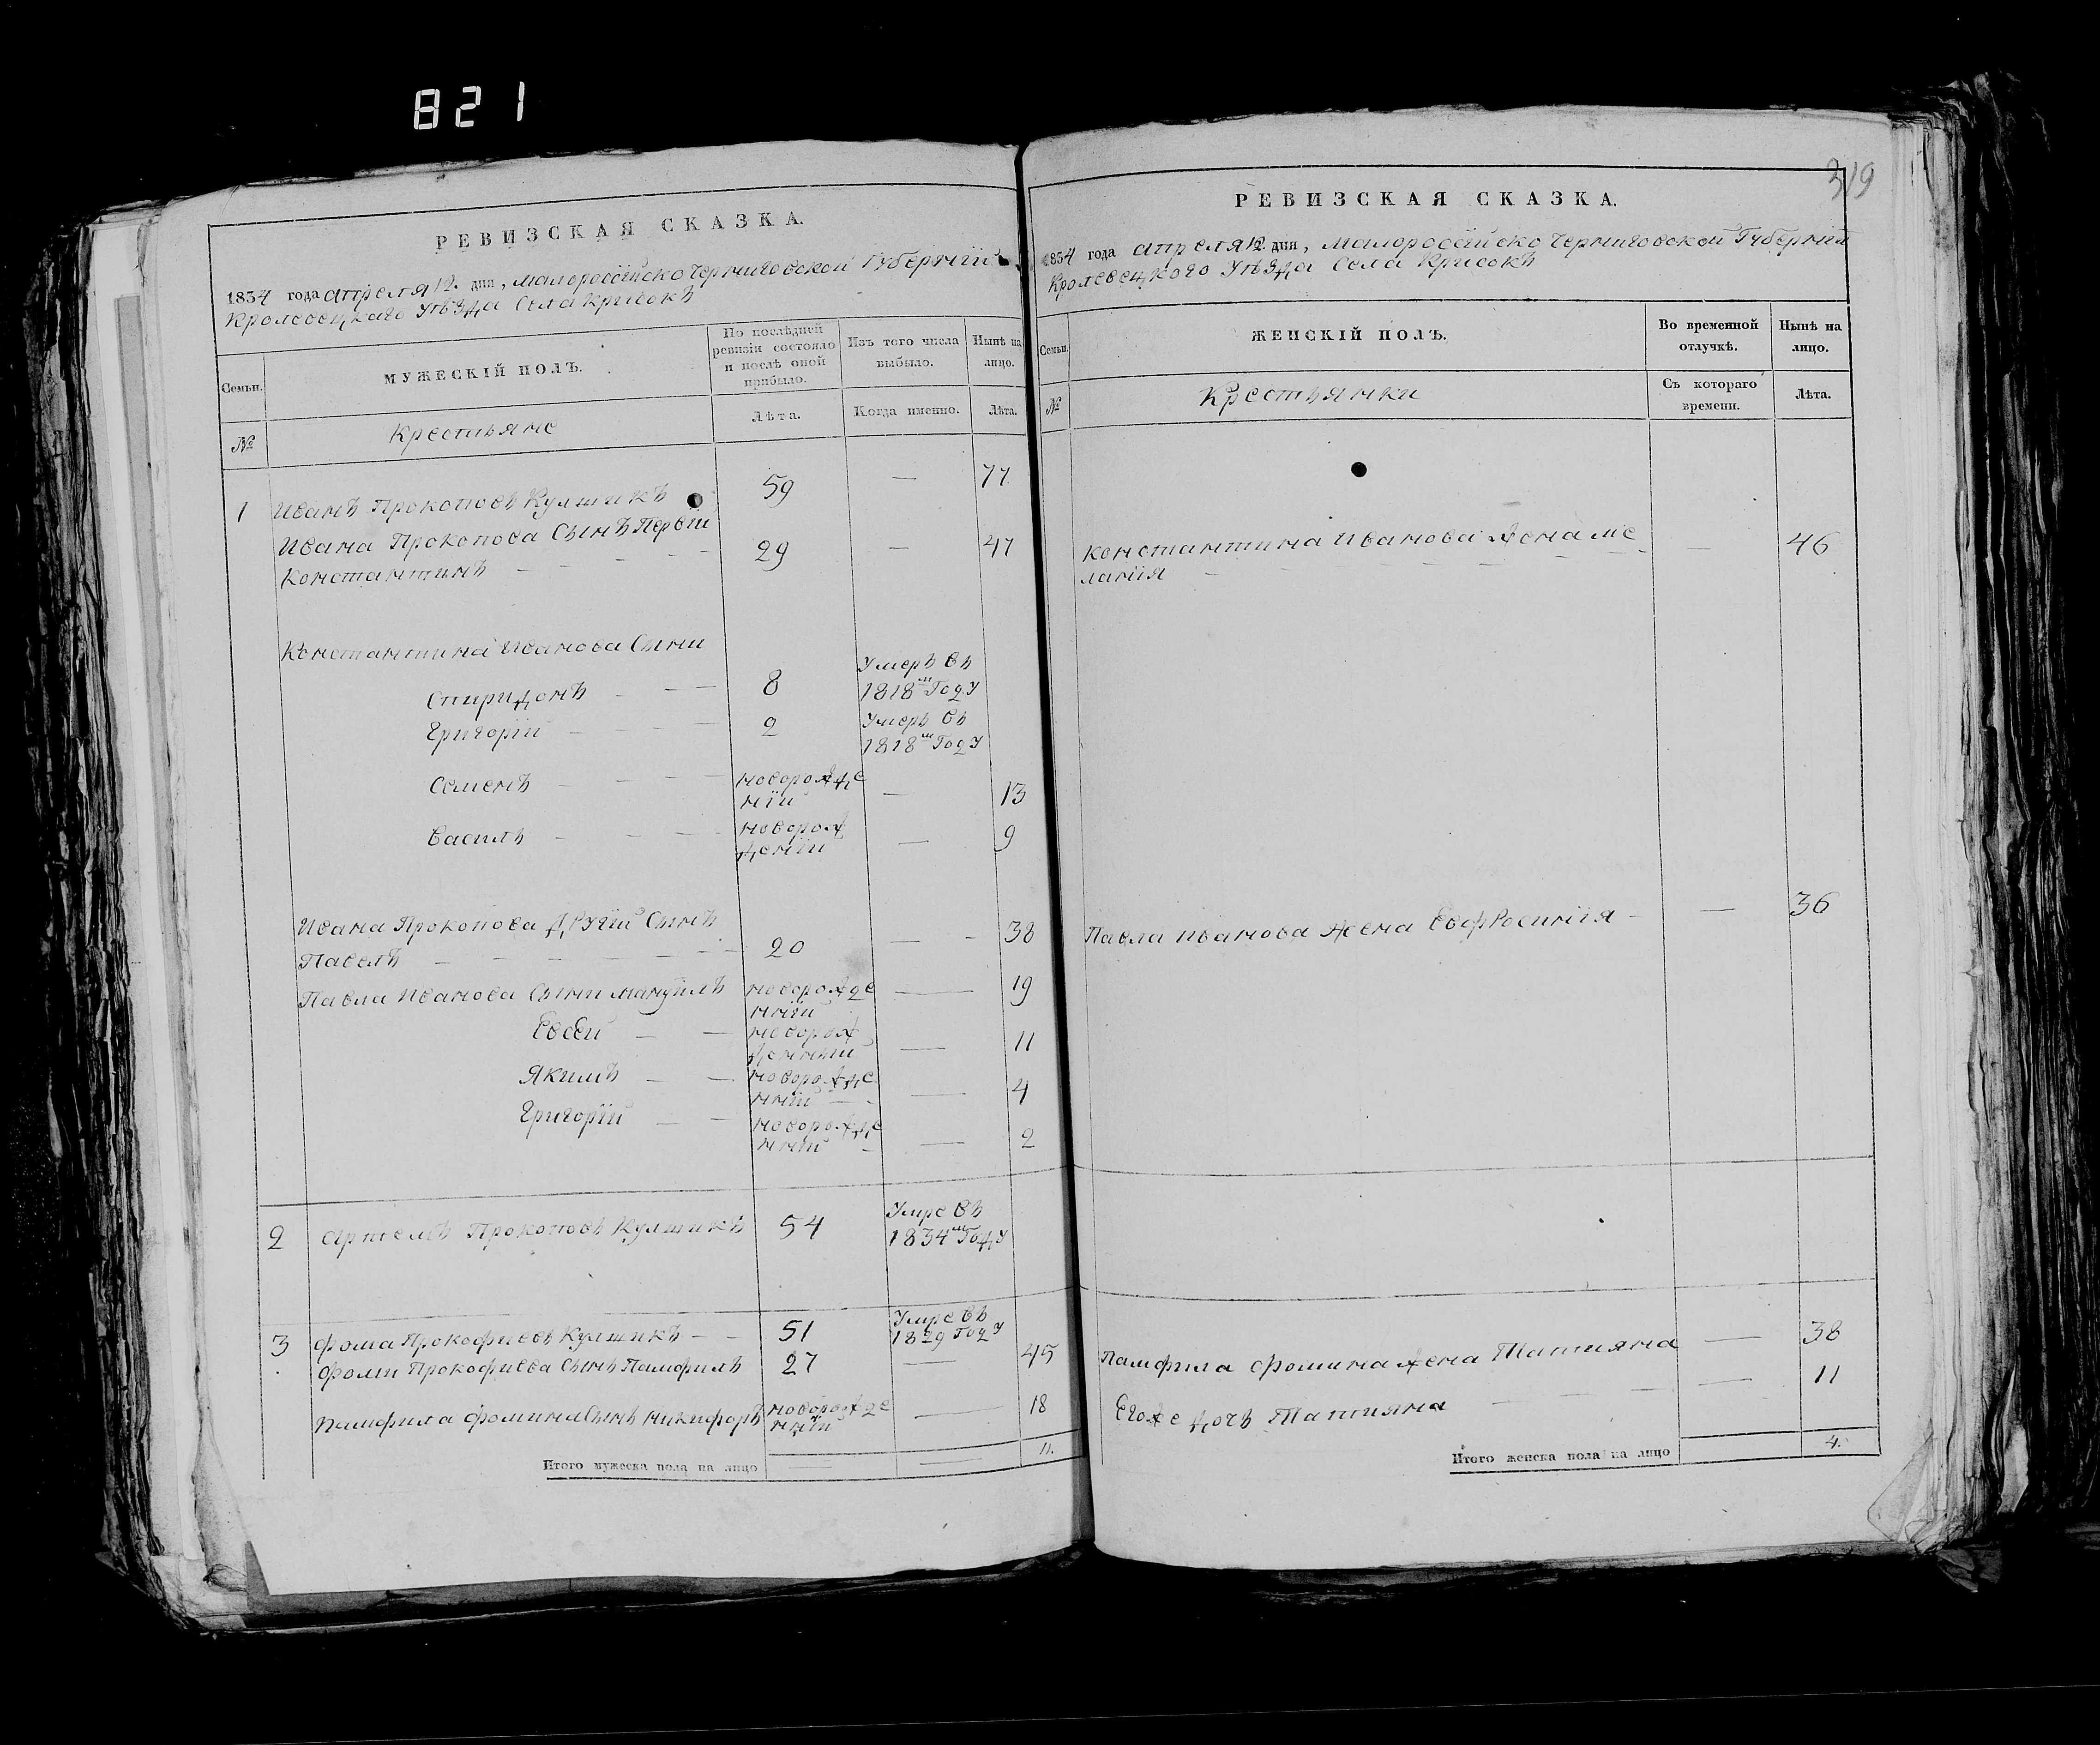 821
РЕВИЗСКАЯ СКАЗКА.
1834 года апреля 12. дня, малоросейско Черниговской Губернии
Кролевецкаго Уѣзда Села Крисокъ
Семьи.
МУЖЕСКІЙ ПОЛЪ.
По послѣдней
ревизіи состояло
и послѣ оной
прибыло.
Изъ того числа
выбыло.
Нынѣ на
лицо.
№
Крестьяне
Лѣта.
Когда именно.
Лѣта.
1 Иванъ Прокоповъ Кулшикъ 59 — 77
Ивана Прокопова Сынъ Первій
Константинъ 29 — 47
Константина Иванова Сыни
Спиридонъ 8 Умеръ въ
1818м Году
Григорій 2 Умеръ въ
1818м Году
Семенъ новорожде
ній — 13
Василь новорож
деній — 9
Ивана Прокопова Другій Сынъ
Павелъ 20 — 38
Павла Иванова Сыни Мануйлъ новорожде
нній — 19
Евсей новорож
денний — 11
Якимъ новорожде
нній — 4
Григорій новорожде
нній — 2
2 Артемъ Прокоповъ Кулшикъ 54 Умре въ
1834м Году
3 Фома Прокофиевъ Кулшикъ 51 Умре въ
1829 Году
Фоми Прокофиева Сынъ Памфилъ 27 — 45
Памфила Фомина Сынъ Никифоръ новорожде
нній — 18
Итого мужеска пола на лицо 11.
319
РЕВИЗСКАЯ СКАЗКА.
1834 года апреля 12. дня, малоросейско Черниговской Губернии
Кролевецкого Уѣзда Села Крисокъ
Семьи.
ЖЕНСКІЙ ПОЛЪ.
Во временной
отлучкѣ.
Нынѣ на
лицо.
№
Крестьянки
Съ котораго
времени.
Лѣта.
Константина Иванова Жена Ме
ланія — 46
Павла Иванова Жена Евфросинія — 36
Памфила Фомина Жена Татияна — 38
Егоже дочь Татияна — 11
Итого женска пола на лицо 4.